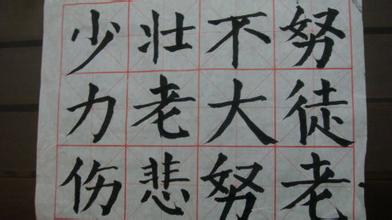 少壮不努
力老大徒
伤悲努老